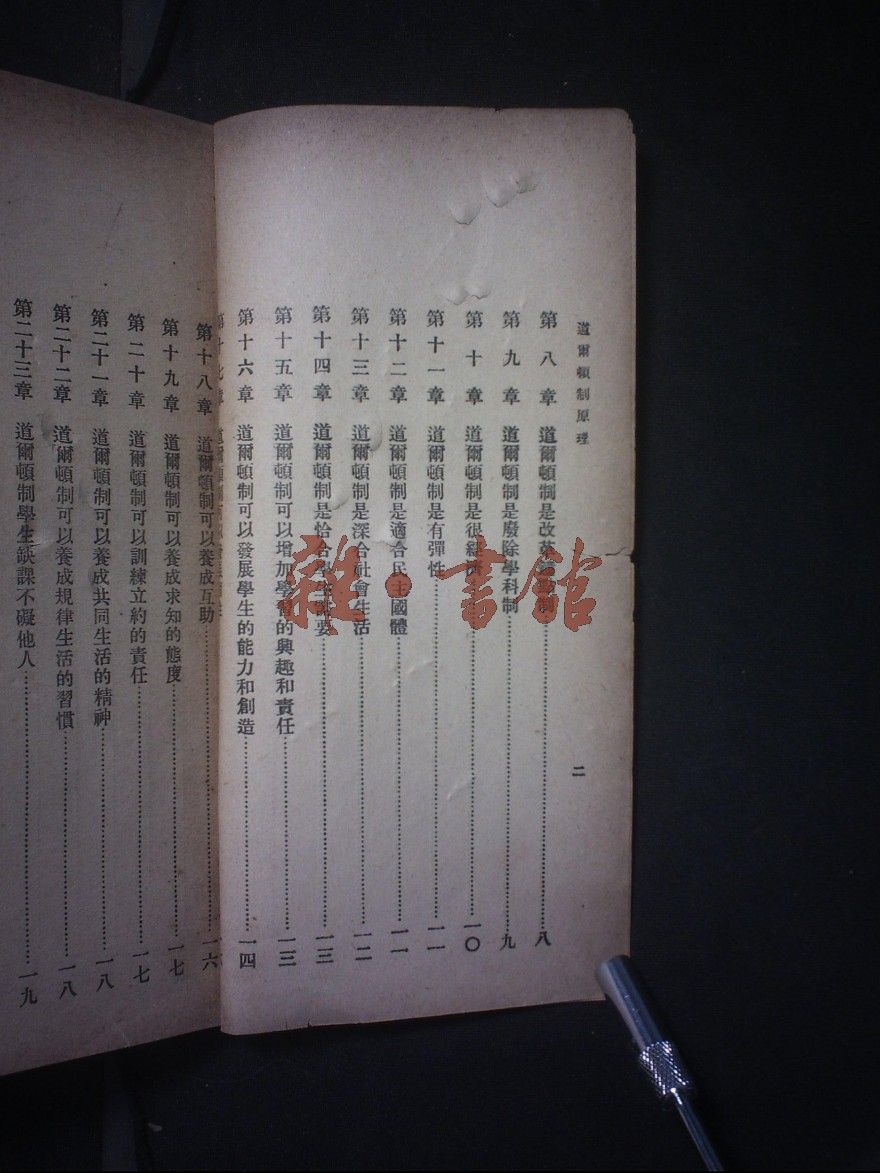 道爾頓制原理
二
第八章　道爾頓制是改革　制……八
第九章　道爾頓制是廢除學科制……九
第十章　道爾頓制是很經濟……一〇
第十一章　道爾頓制是有彈性……一一
第十二章　道爾頓制是適合民主國體……一一
第十三章　道爾頓制是深合社會生活……一二
第十四章　道爾頓制是恰合學生需要……一三
第十五章　道爾頓制可以增加學習的興趣和責任……一三
第十六章　道爾頓制可以發展學生的能力和創造……一四
第十七章　道爾頓制可以
第十八章　道爾頓制可以養成互助……一六
第十九章　道爾頓制可以養成求知的態度……一七
第二十章　道爾頓制可以訓練立約的責任……一七
第二十一章　道爾頓制可以養成共同生活的精神……一八
第二十二章　道爾頓制可以養成規律生活的習慣……一八
第二十三章　道爾頓制學生缺課不礙他人……一九
雜·書館